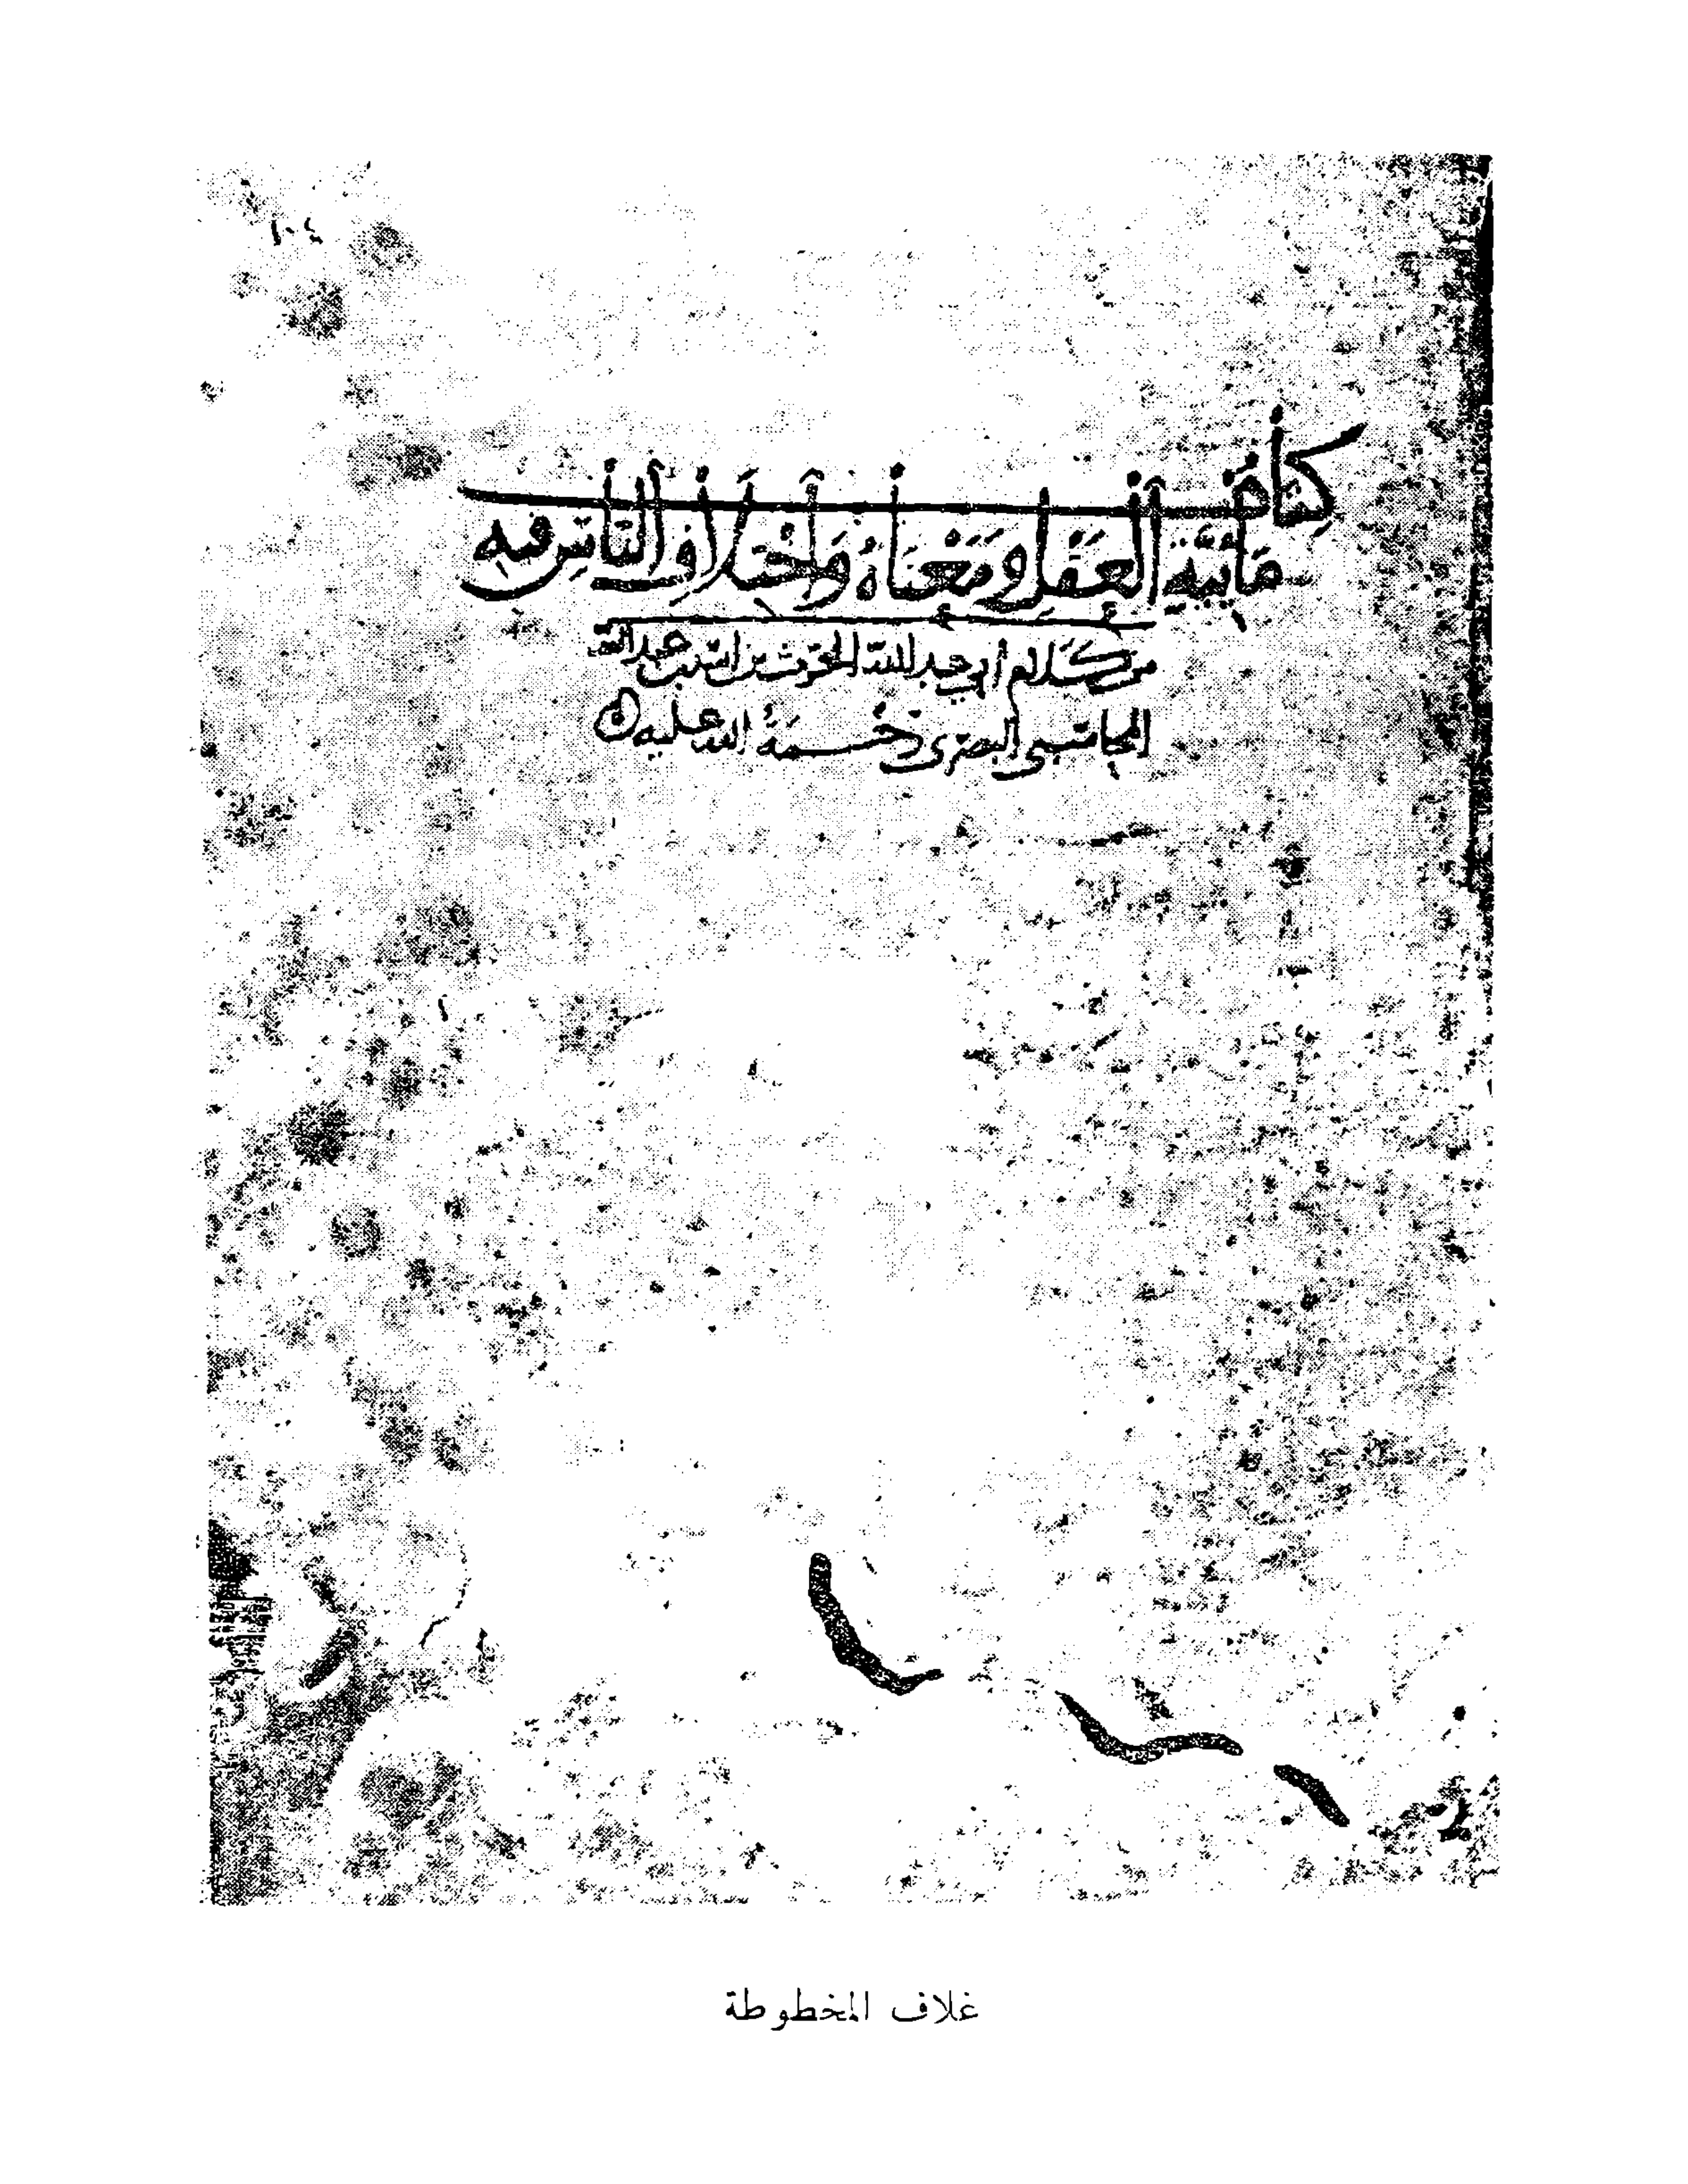 ١٠٤
كتاب
مَائيَّةِ ٱلْعَقْلِ وَمَعْنَاهُ وَٱخْتِلَافِ ٱلنَّاسِ فِيهِ
من كلام أبي عبد الله الحرث بن أسد بن عبد الله
المحاسبي البصري رحمة الله عليه
غلاف المخطوطة